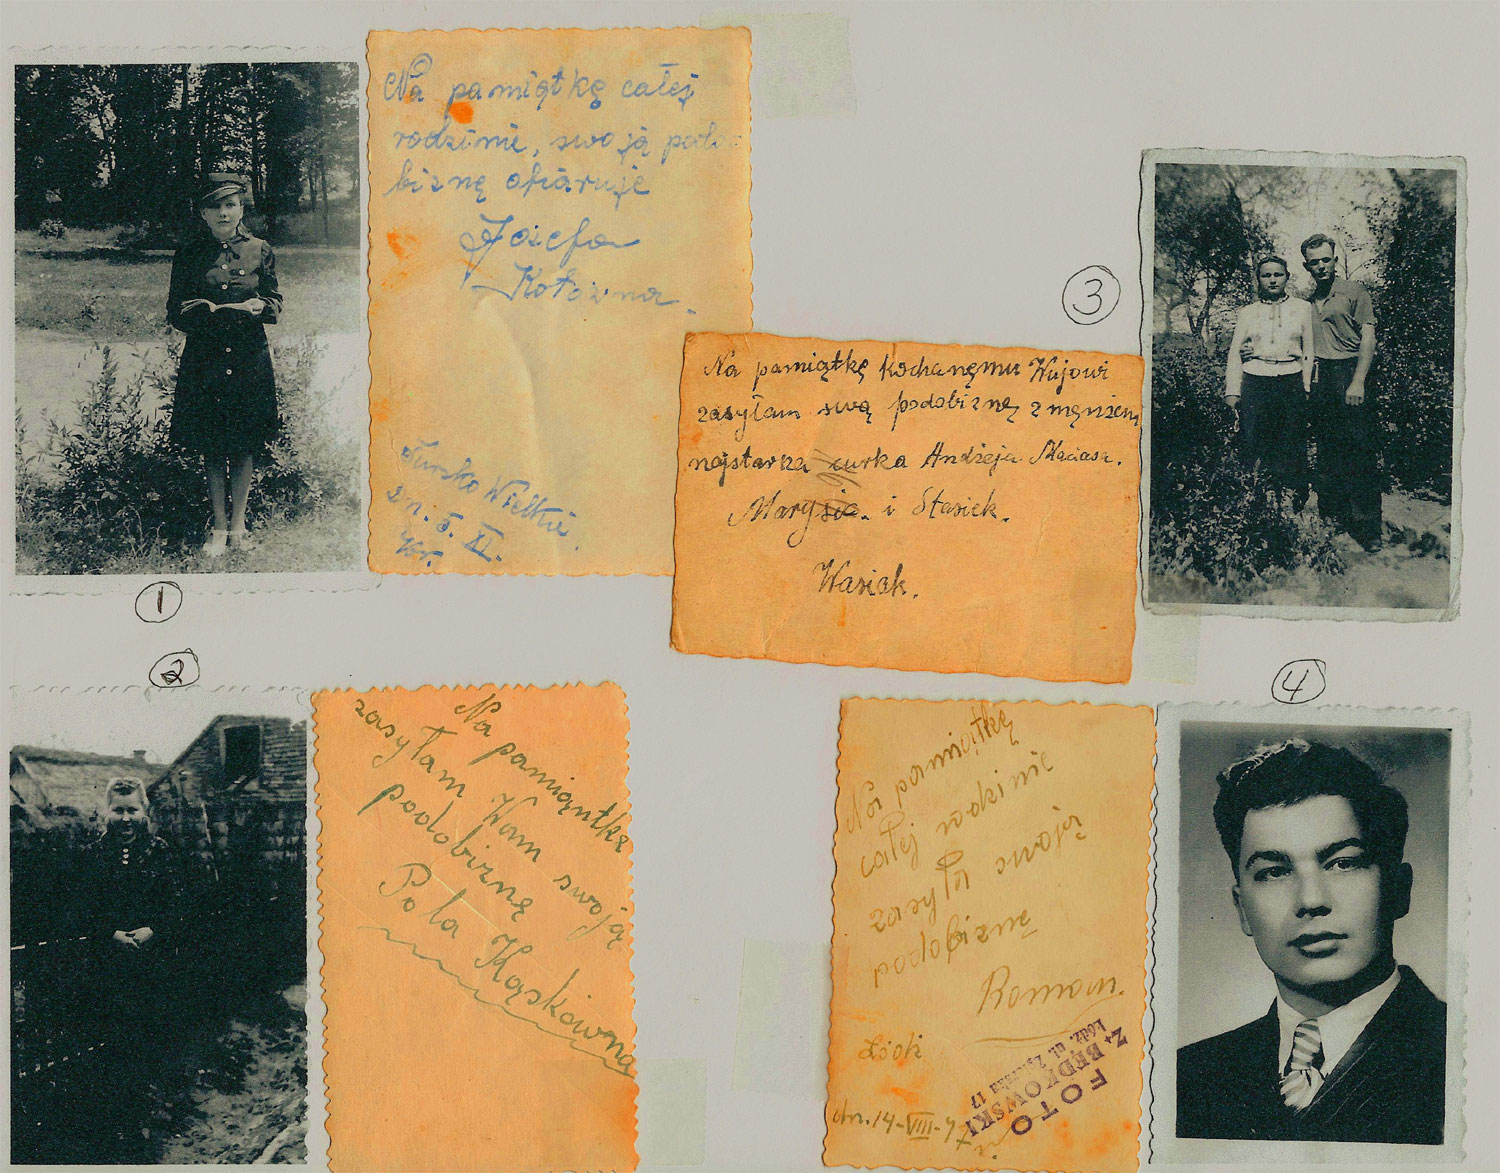 Na pamiątkę całej
rodzinie, swoją podo
biznę ofiaruje
Józefa
Kotówna.
Tursko Wielkie.
dn. 5. XI.
46r.
1
3
Na pamiątkę kochanęmu Wujowi
zasyłam swą podobiznę z męnżem
najstarza curka Andżeja Maciasa.
Marysia i Stasiek.
Wasiak.
2
Na pamiąntkę
zasyłam Wam swoją
podobiznę
Pola Kąskówna
4
Na pamiątkę
całej rodzinie
zasyła swoją
podobiznę
Roman.
Łódź
dn. 14-VIII-47
FOTO
Z. BĘDKOWSKI
Łódź, ul. 17